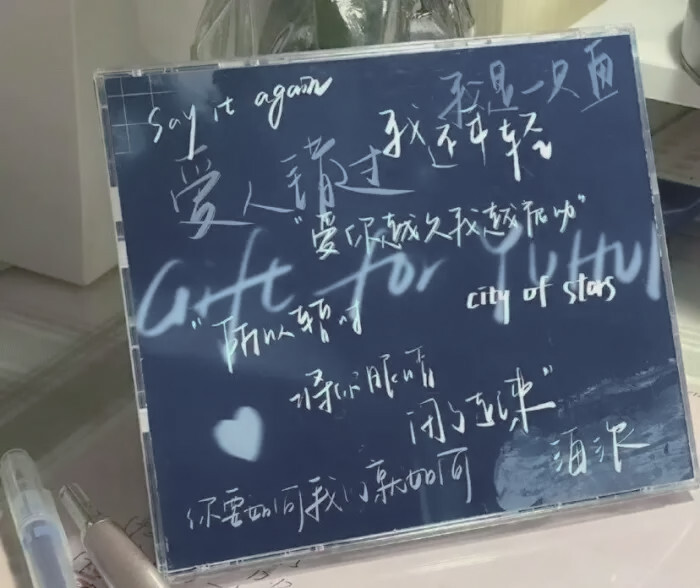 say it again
我是一只鱼
我还年轻
爱人错过
"爱你越久我越被动"
Gift for
city of stars
"所以暂时
将你眼睛
闭了起来"
海浪
你要如何我们就如何